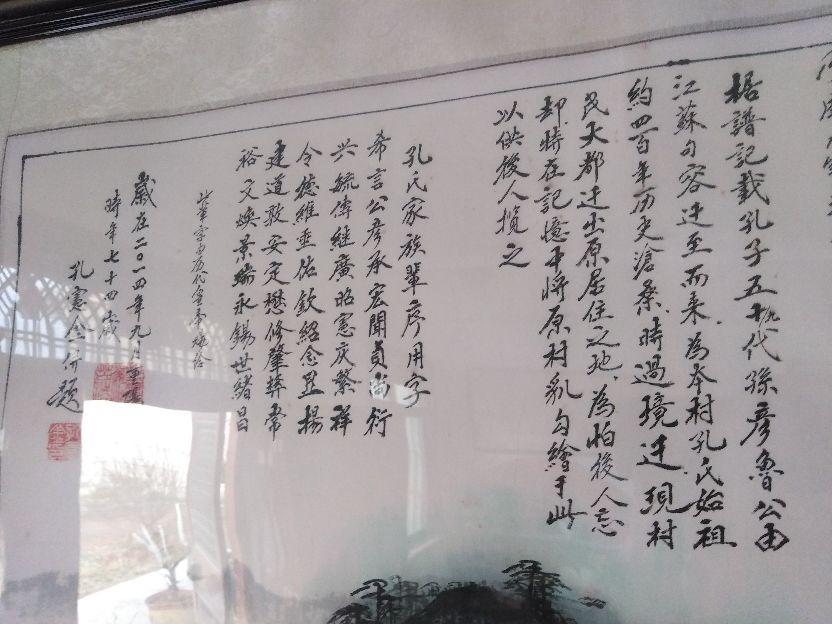 据譜記載孔子五十九代孫彦魯公由
江蘇句容迁至而来.為本村孔氏始祖
約四百年历史滄桑.時過境迁.現村
民大都迁出原居住之地.為怕後人忘
却.特在記憶中將原村貌勾繪于此
以供後人攬之
孔氏家族輩序用字
希言公彦承宏聞貞尚衍
兴毓傳继廣昭憲庆繁祥
令德維垂佑欽紹念显揚
建道敦安定懋修肇彝常
裕文焕景瑞永錫世緒昌
此輩字由历代皇帝
歲在二〇一四年九月重陽
時年七十四歲
孔憲金并題